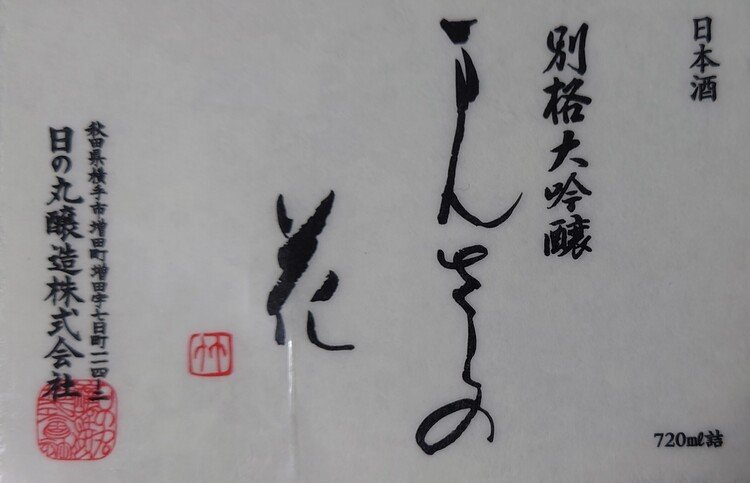 日本酒
別格大吟醸
まんさくの
花
秋田県横手市増田町増田字七日町一一四-二
日の丸醸造株式会社
720mℓ詰